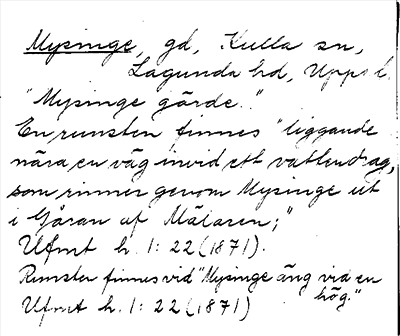 Mysinge, gd, Kulla sn,
Lagunda hd, Upps l.
"Mysinge gärde."
En runsten finnes "liggande
nära en väg invid ett vattendrag,
som rinner genom Mysinge ut
i Gåran af Mälaren;"
Ufmt h. 1: 22 (1871).
Runsten finnes vid "Mysinge äng vid en
hög"
Ufmt h. 1: 22 (1871)